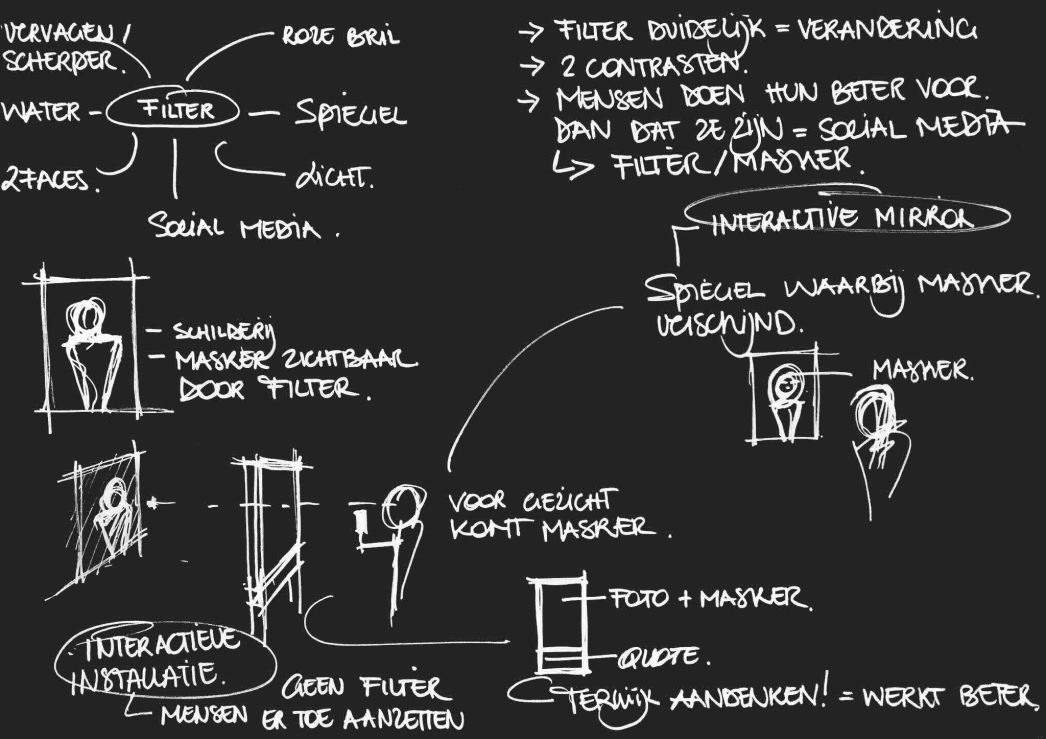 VERVAGEN /
SCHERPER.
ROZE BRIL
WATER - FILTER - SPIEGEL
2 FACES.
LICHT.
SOCIAL MEDIA .
→ FILTER DUIDELIJK = VERANDERING
→ 2 CONTRASTEN.
→ MENSEN DOEN HUN BETER VOOR.
DAN DAT ZE ZIJN = SOCIAL MEDIA
↳ FILTER / MASKER.
INTERACTIVE MIRROR
SPIEGEL WAARBIJ MASKER.
VERSCHIJND.
MASKER.
- SCHILDERIJ
- MASKER ZICHTBAAR
DOOR FILTER.
VOOR GEZICHT
KOMT MASKER.
FOTO + MASKER.
QUOTE.
INTERACTIEVE
INSTALLATIE.
GEEN FILTER
MENSEN ER TOE AANZETTEN
AANDENKEN! = WERKT BETER.